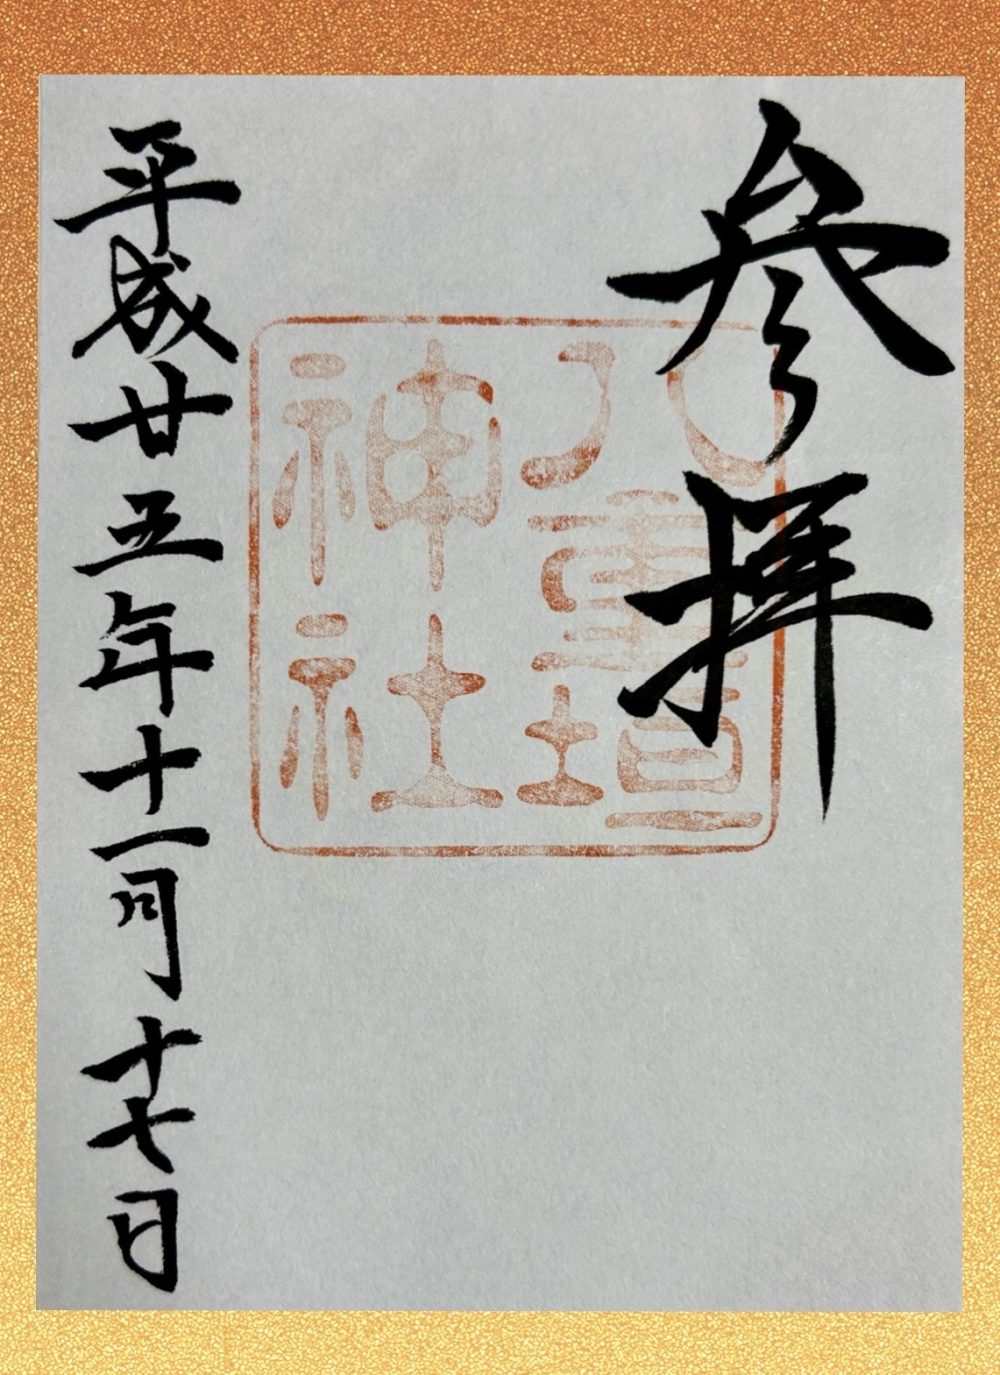 参拝
八重垣
神社
平成廿五年十一月十七日